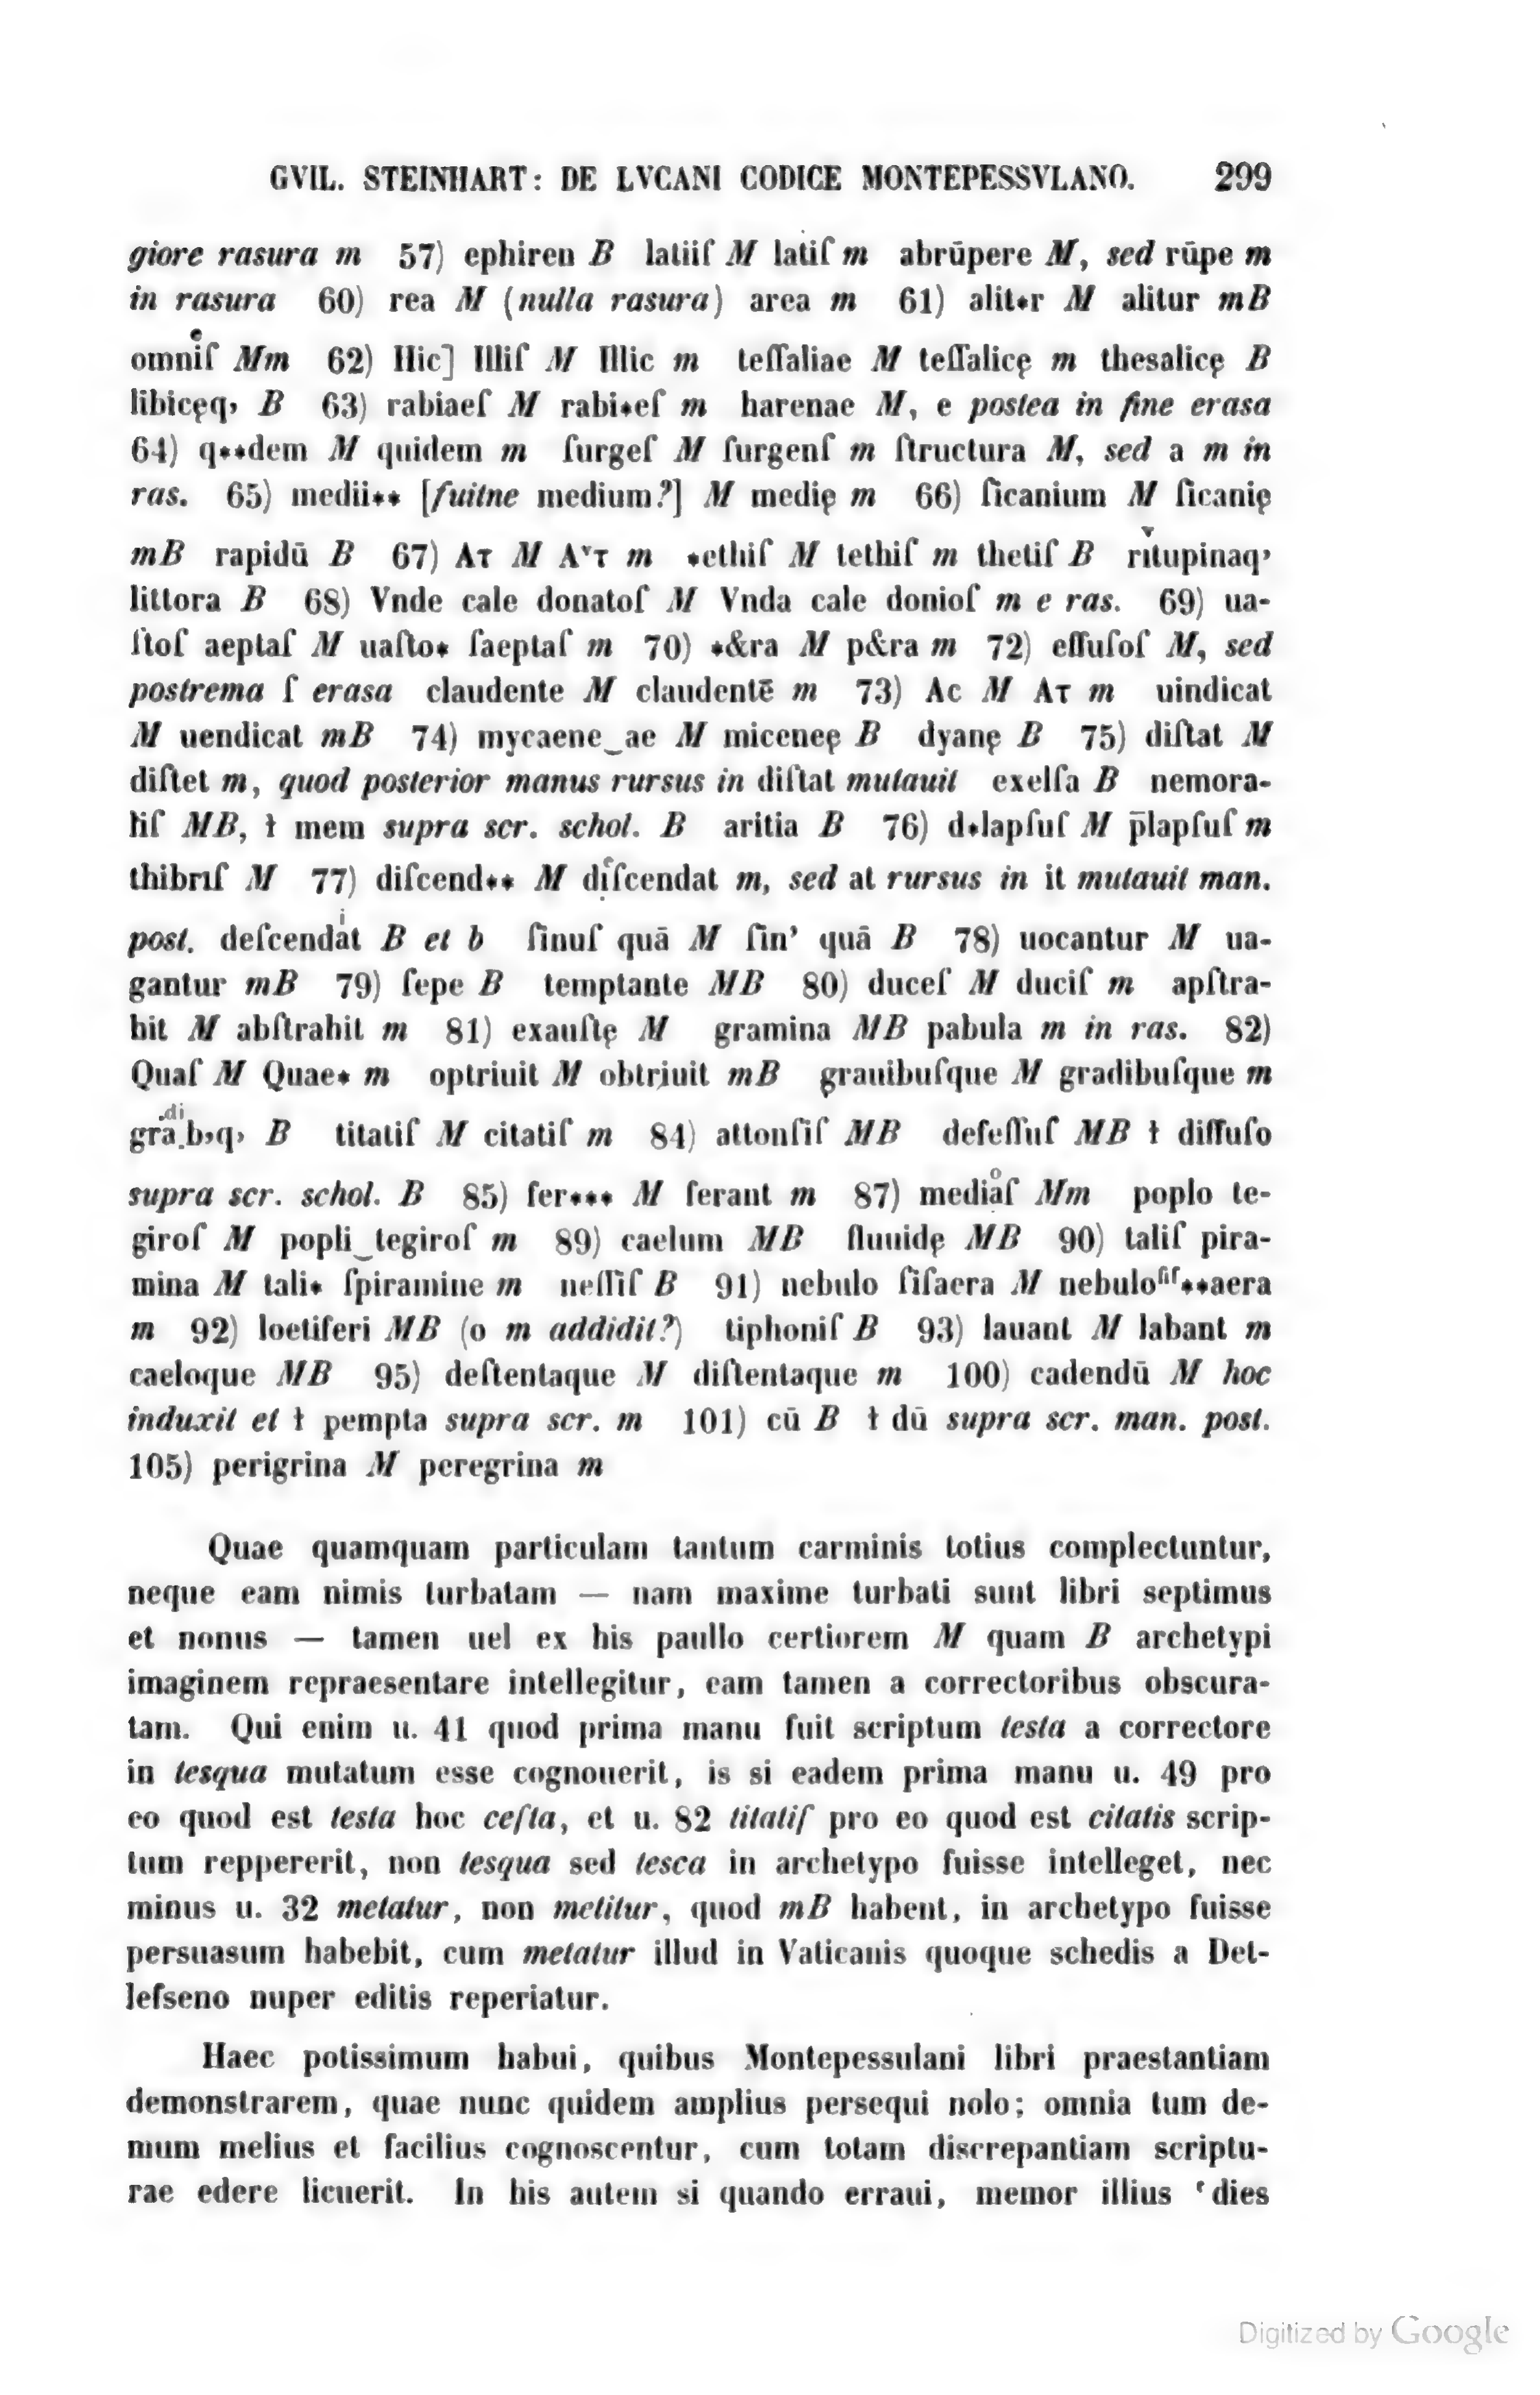 GVIL. STEINHART: DE LVCANI CODICE MONTEPESSVLANO. 299
giore rasura m 57) ephiren B latiiſ M latiſ m abrūpere M, sed rūpe m
in rasura 60) rea M (nulla rasura) area m 61) alit*r M alitur mB
omniͤſ Mm 62) Hic] Illiſ M Illic m teſſaliae M teſſalicę m thesalicę B
libicęq, B 63) rabiaeſ M rabi*eſ m harenae M, e postea in fine erasa
64) q**dem M quidem m ſurgeſ M ſurgenſ m ſtructura M, sed a m in
ras. 65) medii** [fuitne medium?] M medię m 66) ſicanium M ſicanię
mB rapidū B 67) Aт M Aᵛт m *ethiſ M tethiſ m thetiſ B riᵛtupinaq’
littora B 68) Vnde cale donatoſ M Vnda cale donioſ m e ras. 69) ua-
ſtoſ aeptaſ M uaſto* ſaeptaſ m 70) *&ra M p&ra m 72) effuſoſ M, sed
postrema ſ erasa claudente M claudentē m 73) Ac M Aт m uindicat
M uendicat mB 74) mycaene‿ae M miceneę B dyanę B 75) diſtat M
diſtet m, quod posterior manus rursus in diſtat mutauit exelſa B nemora-
liſ MB, ƚ mem supra scr. schol. B aritia B 76) d*lapſuſ M p̄lapſuſ m
thibrıſ M 77) diſcend** M diͤſcendat m, sed at rursus in it mutauit man.
post. deſcendaͥt B et b ſinuſ quā M ſin’ quā B 78) uocantur M ua-
gantur mB 79) ſepe B temptante MB 80) duceſ M duciſ m apſtra-
hit M abſtrahit m 81) exauſtę M gramina MB pabula m in ras. 82)
Quaſ M Quae* m optriuit M obtriuit mB grauibuſque M gradibuſque m
gra.ᵈⁱb,q, B titatiſ M citatiſ m 84) attonſiſ MB defeſſuſ MB ƚ diffuſo
supra scr. schol. B 85) fer*** M ferant m 87) mediaͦſ Mm poplo te-
giroſ M popli‿tegiroſ m 89) caelum MB fluuidę MB 90) taliſ pira-
mina M tali* ſpiramine m neſſiſ B 91) nebulo ſiſaera M nebuloſiſ**aera
m 92) loetiferi MB (o m addidit?) tiphoniſ B 93) lauant M labant m
caeloque MB 95) deſtentaque M diſtentaque m 100) cadendū M hoc
induxit et ƚ pempta supra scr. m 101) cū B ƚ dū supra scr. man. post.
105) perigrina M peregrina m
Quae quamquam particulam tantum carminis totius complectuntur,
neque eam nimis turbatam — nam maxime turbati sunt libri septimus
et nonus — tamen uel ex his paullo certiorem M quam B archetypi
imaginem repraesentare intellegitur, eam tamen a correctoribus obscura-
tam. Qui enim u. 41 quod prima manu fuit scriptum testa a correctore
in tesqua mutatum esse cognouerit, is si eadem prima manu u. 49 pro
eo quod est testa hoc ceſta, et u. 82 titatiſ pro eo quod est citatis scrip-
tum reppererit, non tesqua sed tesca in archetypo fuisse intelleget, nec
minus u. 32 metatur, non metitur, quod mB habent, in archetypo fuisse
persuasum habebit, cum metatur illud in Vaticanis quoque schedis a Det-
lefseno nuper editis reperiatur.
Haec potissimum habui, quibus Montepessulani libri praestantiam
demonstrarem, quae nunc quidem amplius persequi nolo; omnia tum de-
mum melius et facilius cognoscentur, cum totam discrepantiam scriptu-
rae edere licuerit. In his autem si quando erraui, memor illius ‘dies
Digitized by Google